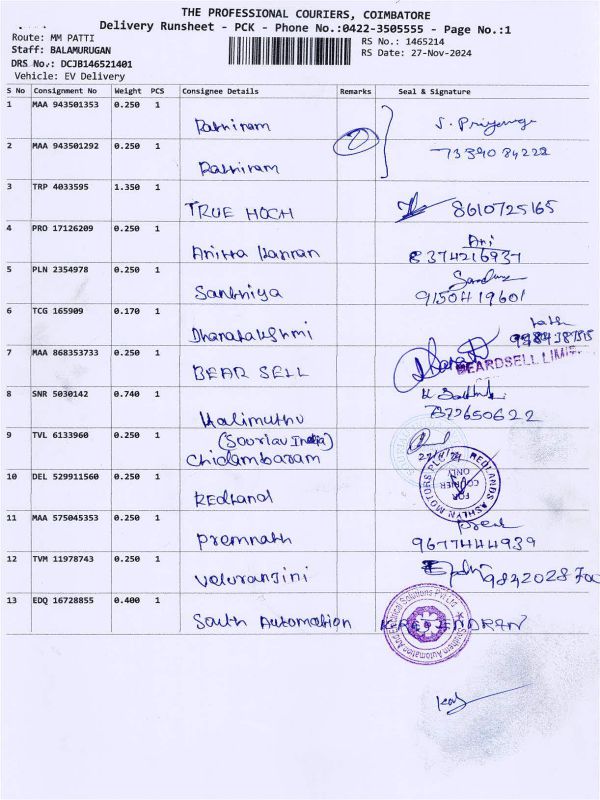 THE PROFESSIONAL COURIERS, COIMBATORE
Delivery Runsheet - PCK - Phone No.:0422-3505555 - Page No.:1
Route: MM PATTI
RS No.: 1465214
Staff: BALAMURUGAN
RS Date: 27-Nov-2024
DRS No.: DCJB146521401
Vehicle: EV Delivery
S No Consignment No Weight PCS Consignee Details Remarks Seal & Signature
1 MAA 943501353 0.250 1
Rathiram S. Priyanga
2 MAA 943501292 0.250 1
Rathiram 7339084222
3 TRP 4033595 1.350 1
TRUE HOCH 8610725165
4 PRO 17126209 0.250 1
Anitta Kannan 8374216937
5 PLN 2354978 0.250 1
Sandhiya 9150419601
6 TCG 165909 0.170 1
Dhanalakshmi
7 MAA 868353733 0.250 1
BEAR SELL BEARDSELL LIMI
8 SNR 5030142 0.740 1
Kalimuthu 7372650622
(Sourlav India)
9 TVL 6133960 0.250 1
Chidambaram
10 DEL 529911560 0.250 1
REDLANDS ASHLYN MOTORS PLC
FOR COURIER ONLY
Redland
11 MAA 575045353 0.250 1
Premnath 9677444939
12 TVM 11978743 0.250 1
Veluranjini
13 EDQ 16728855 0.400 1
South Automation
Southern Automation And Technical Solutions Pvt Ltd